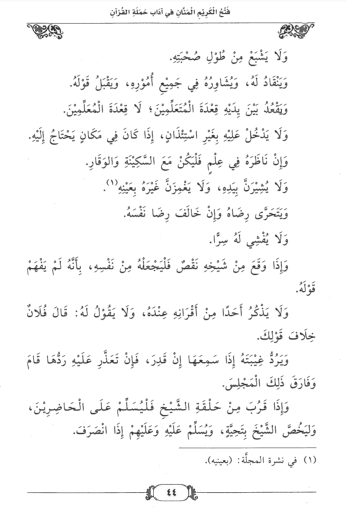 فَتْحُ الْكَرِيمِ الْمَنَّانِ فِي آدَابِ حَمَلَةِ الْقُرْآنِ
وَلَا يَشْبَعُ مِنْ طُولِ صُحْبَتِهِ.
وَيَنْقَادُ لَهُ، وَيُشَاوِرُهُ فِي جَمِيعِ أُمُورِهِ، وَيَقْبَلُ قَوْلَهُ.
وَيَقْعُدُ بَيْنَ يَدَيْهِ قِعْدَةَ الْمُتَعَلِّمِينَ؛ لَا قِعْدَةَ الْمُعَلِّمِينَ.
وَلَا يَدْخُلْ عَلَيْهِ بِغَيْرِ اسْتِئْذَانٍ، إِذَا كَانَ فِي مَكَانٍ يَحْتَاجُ إِلَيْهِ.
وَإِنْ نَاظَرَهُ فِي عِلْمٍ فَلْيَكُنْ مَعَ السَّكِينَةِ وَالْوَقَارِ.
وَلَا يُشِيرَنَّ بِيَدِهِ، وَلَا يَغْمِزَنَّ غَيْرَهُ بِعَيْنِهِ(١).
وَيَتَحَرَّى رِضَاهُ وَإِنْ خَالَفَ رِضَا نَفْسَهُ.
وَلَا يُفْشِي لَهُ سِرًّا.
وَإِذَا وَقَعَ مِنْ شَيْخِهِ نَقْصٌ فَلْيَجْعَلْهُ مِنْ نَفْسِهِ، بِأَنَّهُ لَمْ يَفْهَمْ
قَوْلَهُ.
وَلَا يَذْكُرُ أَحَدًا مِنْ أَقْرَانِهِ عِنْدَهُ، وَلَا يَقُولُ لَهُ: قَالَ فُلَانٌ
خِلَافَ قَوْلِكَ.
وَيَرُدُّ غِيبَتَهُ إِذَا سَمِعَهَا إِنْ قَدِرَ، فَإِنْ تَعَذَّرَ عَلَيْهِ رَدُّهَا قَامَ
وَفَارَقَ ذَلِكَ الْمَجْلِسَ.
وَإِذَا قَرُبَ مِنْ حَلْقَةِ الشَّيْخِ فَلْيُسَلِّمْ عَلَى الْحَاضِرِينَ،
وَلْيَخُصَّ الشَّيْخَ بِتَحِيَّةٍ، وَيُسَلِّمْ عَلَيْهِ وَعَلَيْهِمْ إِذَا انْصَرَفَ.
(١) في نشرة المجلَّة: (بعينيه).
٤٤